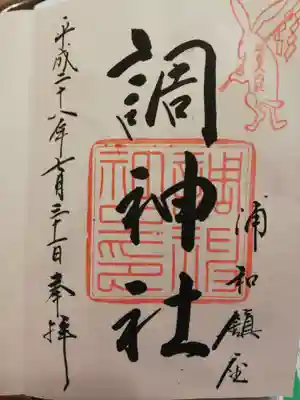 浦和鎮座
調神社
平成二十八年七月三十一日奉拝